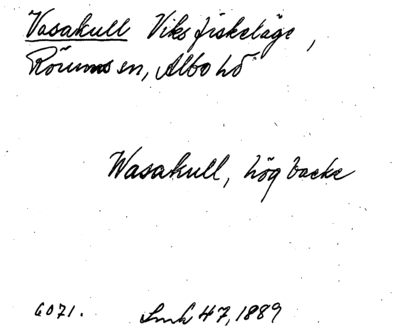 Vasakull Viks fiskeläge,
Rörums sn, Albo hd
Wasakull, hög backe
6071. Lmh 47, 1889